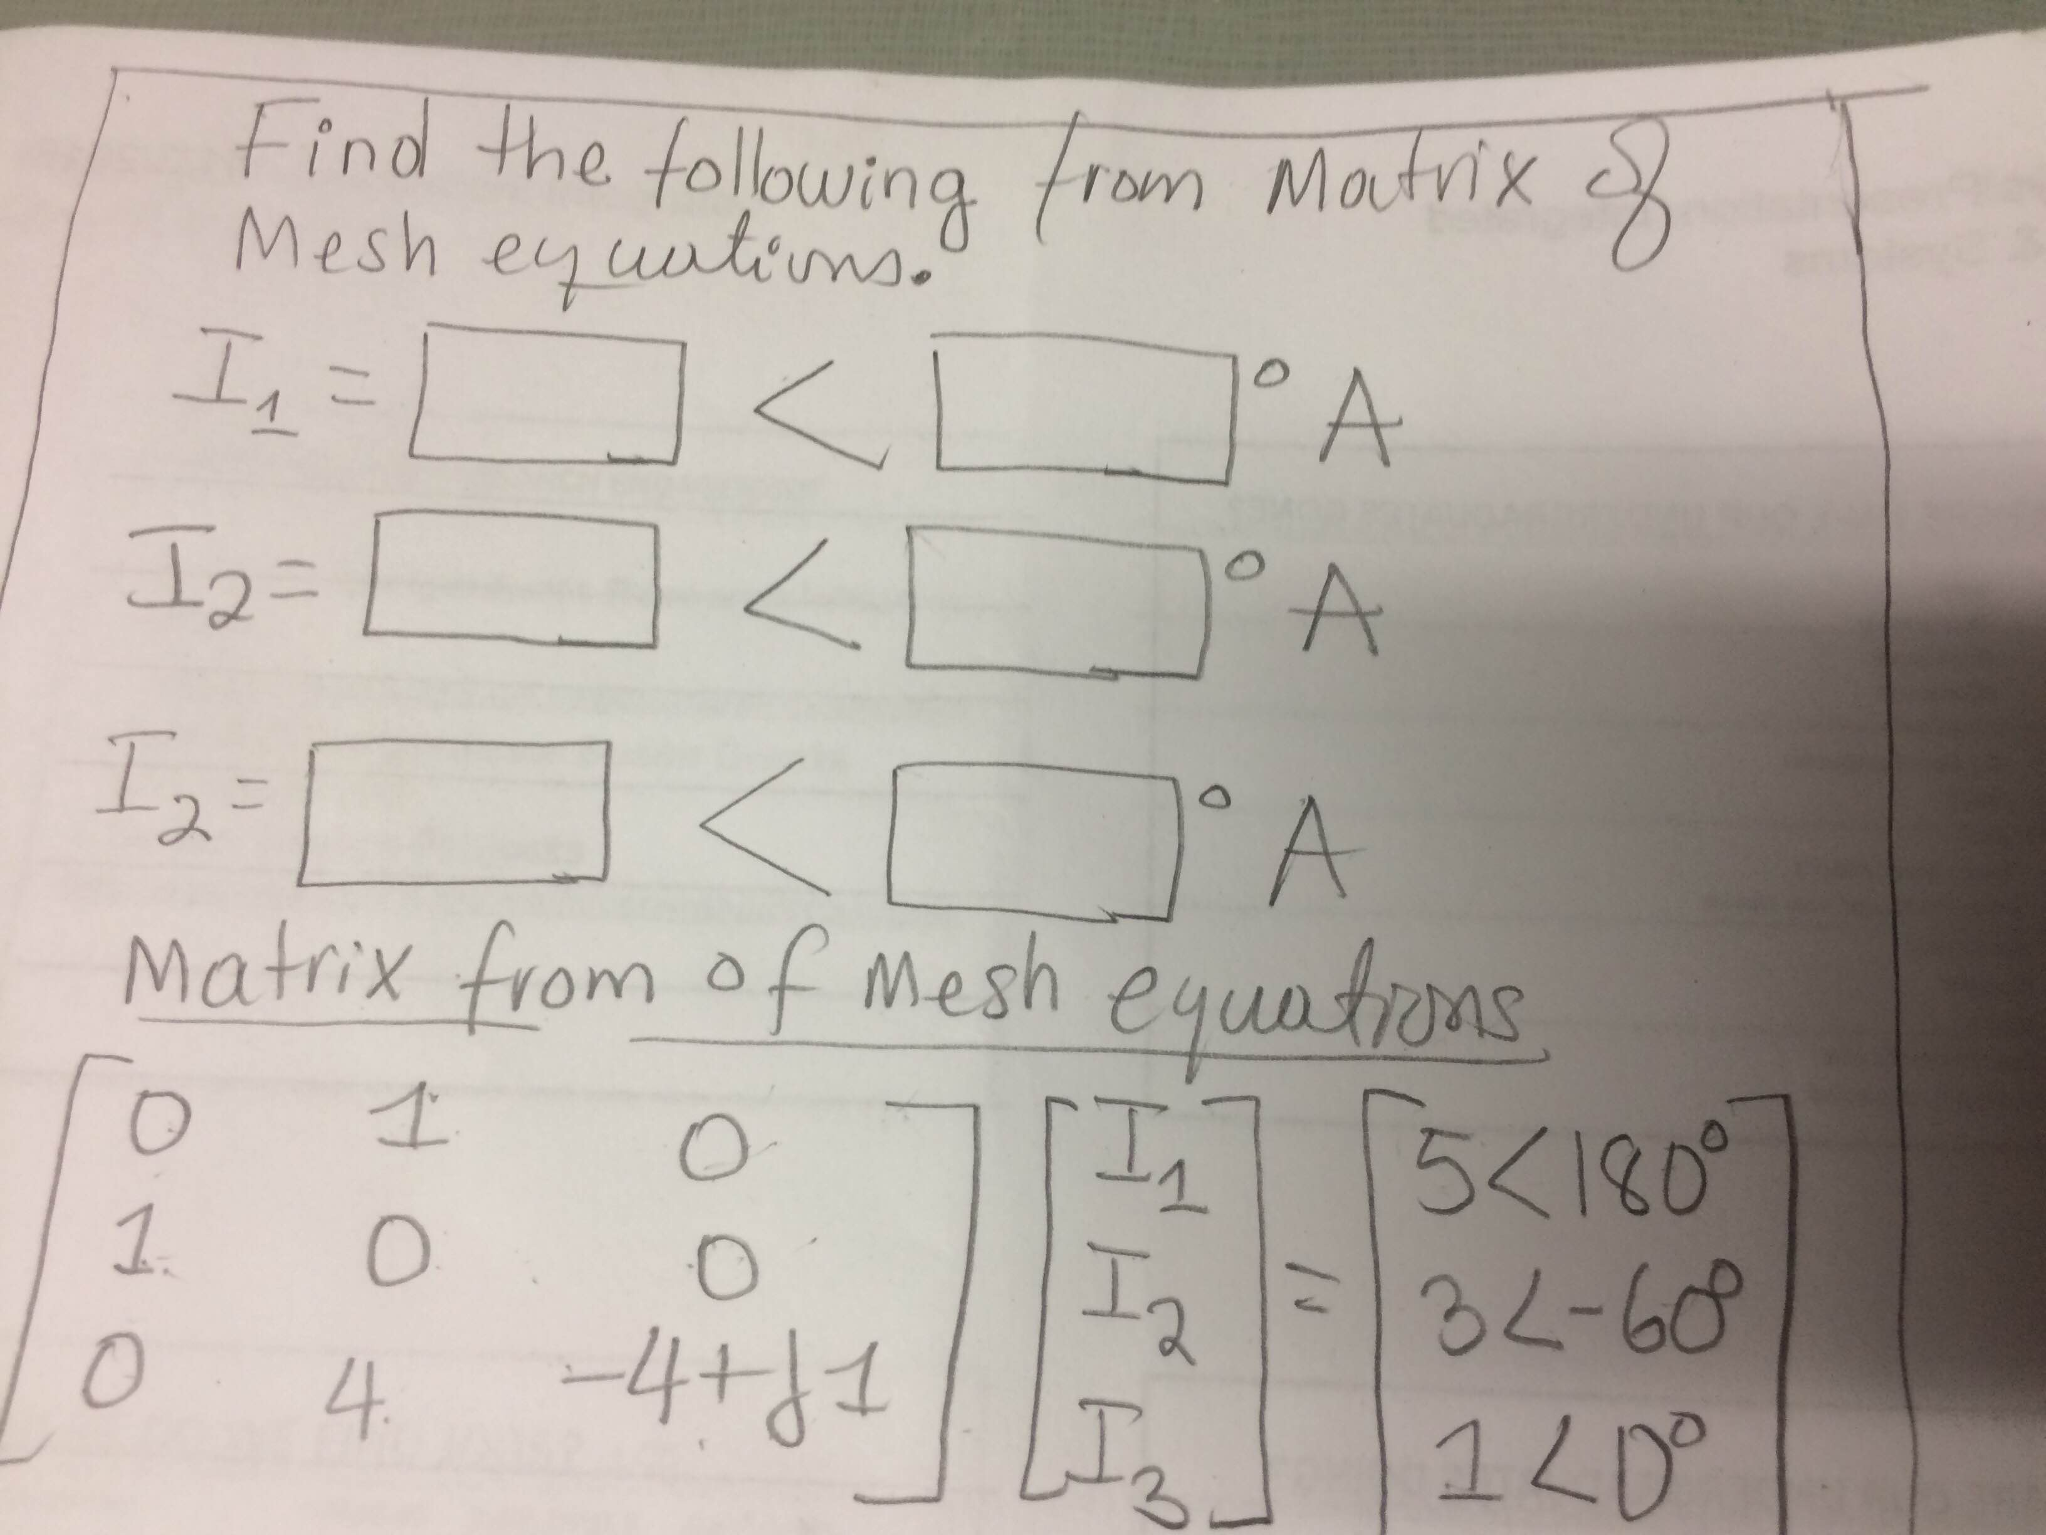 Find the following from Matrix of
Mesh equations.
I1 = < ° A
I2 = < ° A
I2 = < ° A
Matrix from of Mesh equations
0 1 0 I1 5<180°
1 0 0 I2 = 3<-60°
0 4 -4+j1 I3 1<0°